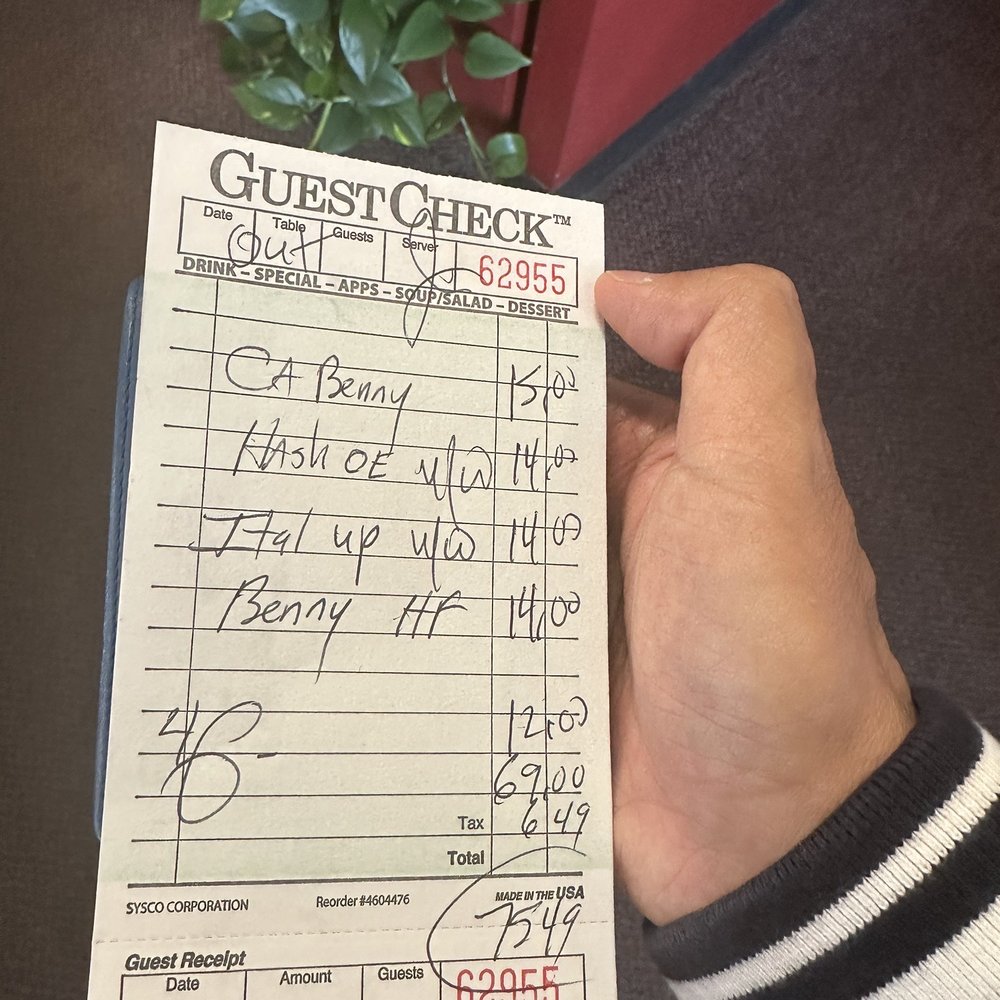 GUEST CHECK™
Date Table Guests Server
Out 62955
DRINK – SPECIAL – APPS – SOUP/SALAD – DESSERT
CA Benny 15.00
Hash OE w/w 14.00
Ital up w/w 14.00
Benny HF 14.00
4 C - 12.00
69.00
Tax 6 49
Total
SYSCO CORPORATION Reorder #4604476 MADE IN THE USA
75 49
Guest Receipt
Date Amount Guests 62955